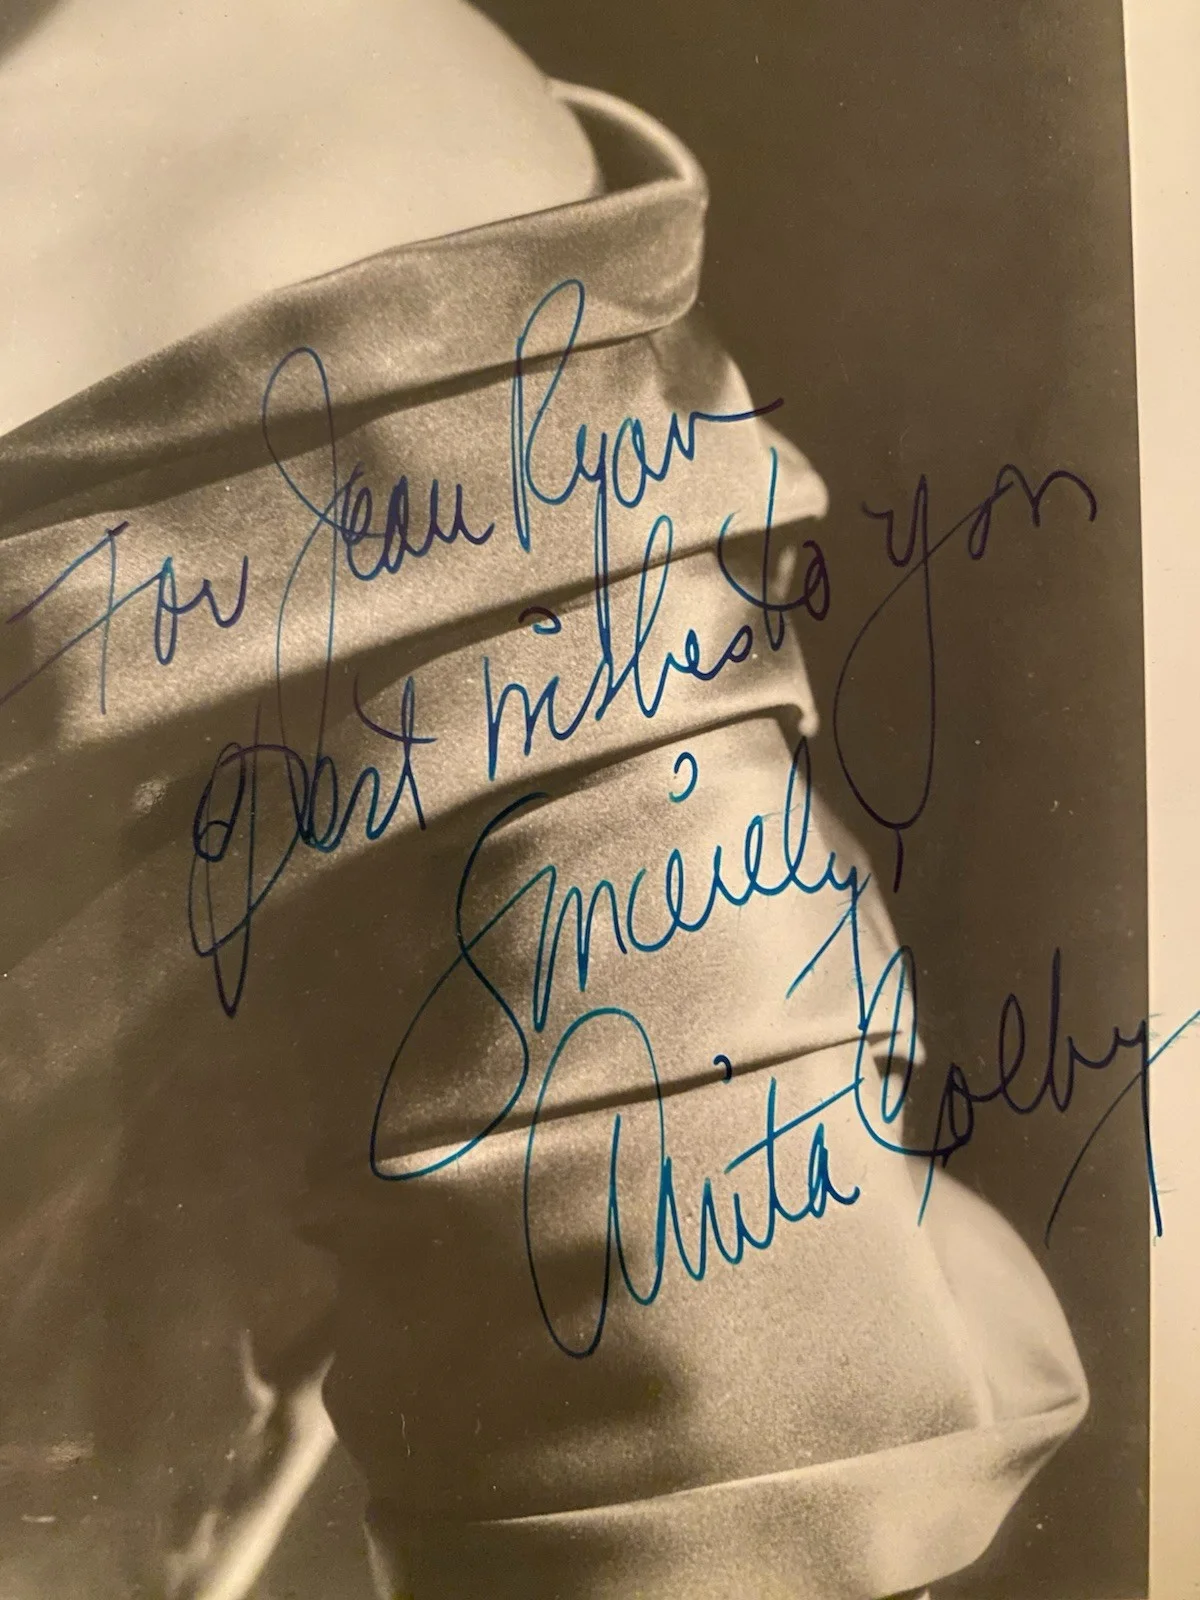 For Jean Ryan
Best wishes to you
Sincerely,
Anita Colby